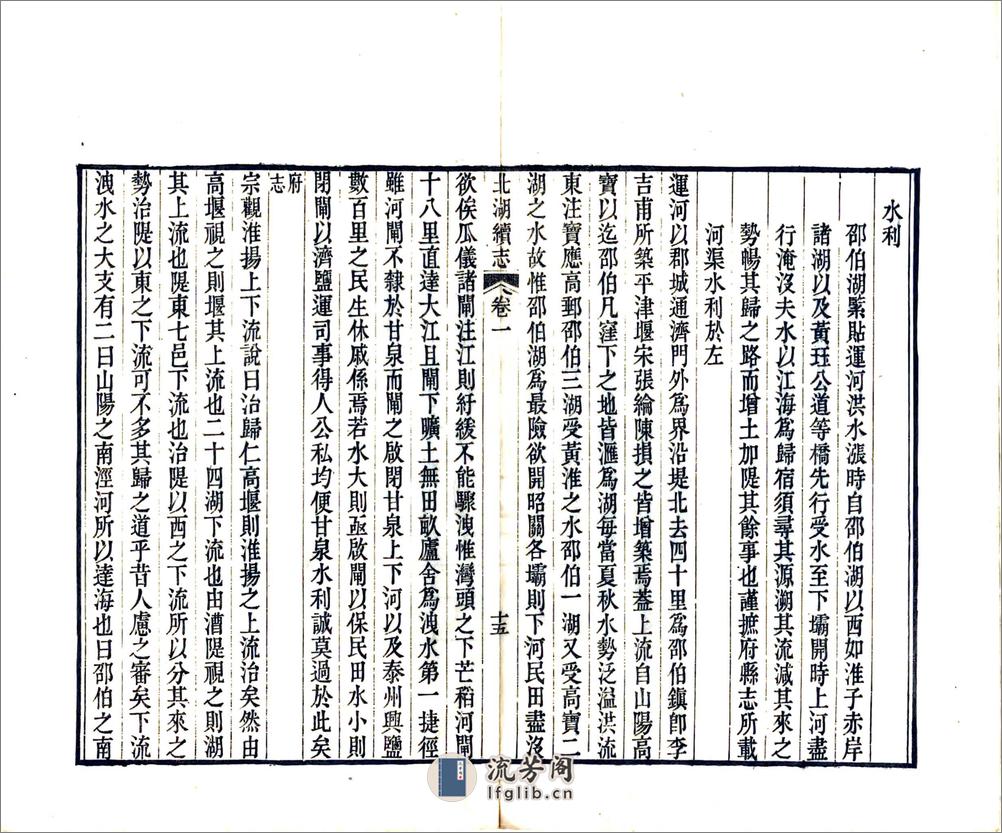 水利
邵伯湖緊貼運河洪水漲時自邵伯湖以西如淮子赤岸
諸湖以及黃珏公道等橋先行受水至下壩開時上河盡
行淹沒夫水以江海爲歸宿須尋其源溯其流減其來之
勢暢其歸之路而增土加隄其餘事也謹摭府縣志所載
河渠水利於左
運河以郡城通濟門外爲界沿堤北去四十里爲邵伯鎮卽李
吉甫所築平津堰宋張綸陳損之皆增築焉蓋上流自山陽高
寶以迄邵伯凡窪下之地皆滙爲湖每當夏秋水勢泛溢洪流
東注寶應高郵邵伯三湖受黃淮之水邵伯一湖又受高寶二
湖之水故惟邵伯湖爲最險欲開昭關各壩則下河民田盡沒
北湖續志 卷一 十五
欲俟瓜儀諸閘注江則紆緩不能驟洩惟灣頭之下芒稻河閘
十八里直達大江且閘下曠土無田畝廬舍爲洩水第一捷徑
雖河閘不隸於甘泉而閘之啟閉甘泉上下河以及泰州興鹽
數百里之民生休戚係焉若水大則亟啟閘以保民田水小則
閉閘以濟鹽運司事得人公私均便甘泉水利誠莫過於此矣
府志
宗觀淮揚上下流說曰治歸仁高堰則淮揚之上流治矣然由
高堰視之則堰其上流也二十四湖下流也由漕隄視之則湖
其上流也隄東七邑下流也治隄以西之下流所以分其來之
勢治隄以東之下流可不多其歸之道乎昔人慮之審矣下流
洩水之大支有二曰山陽之南涇河所以達海也曰邵伯之南
流芳阁
lfglib.cn